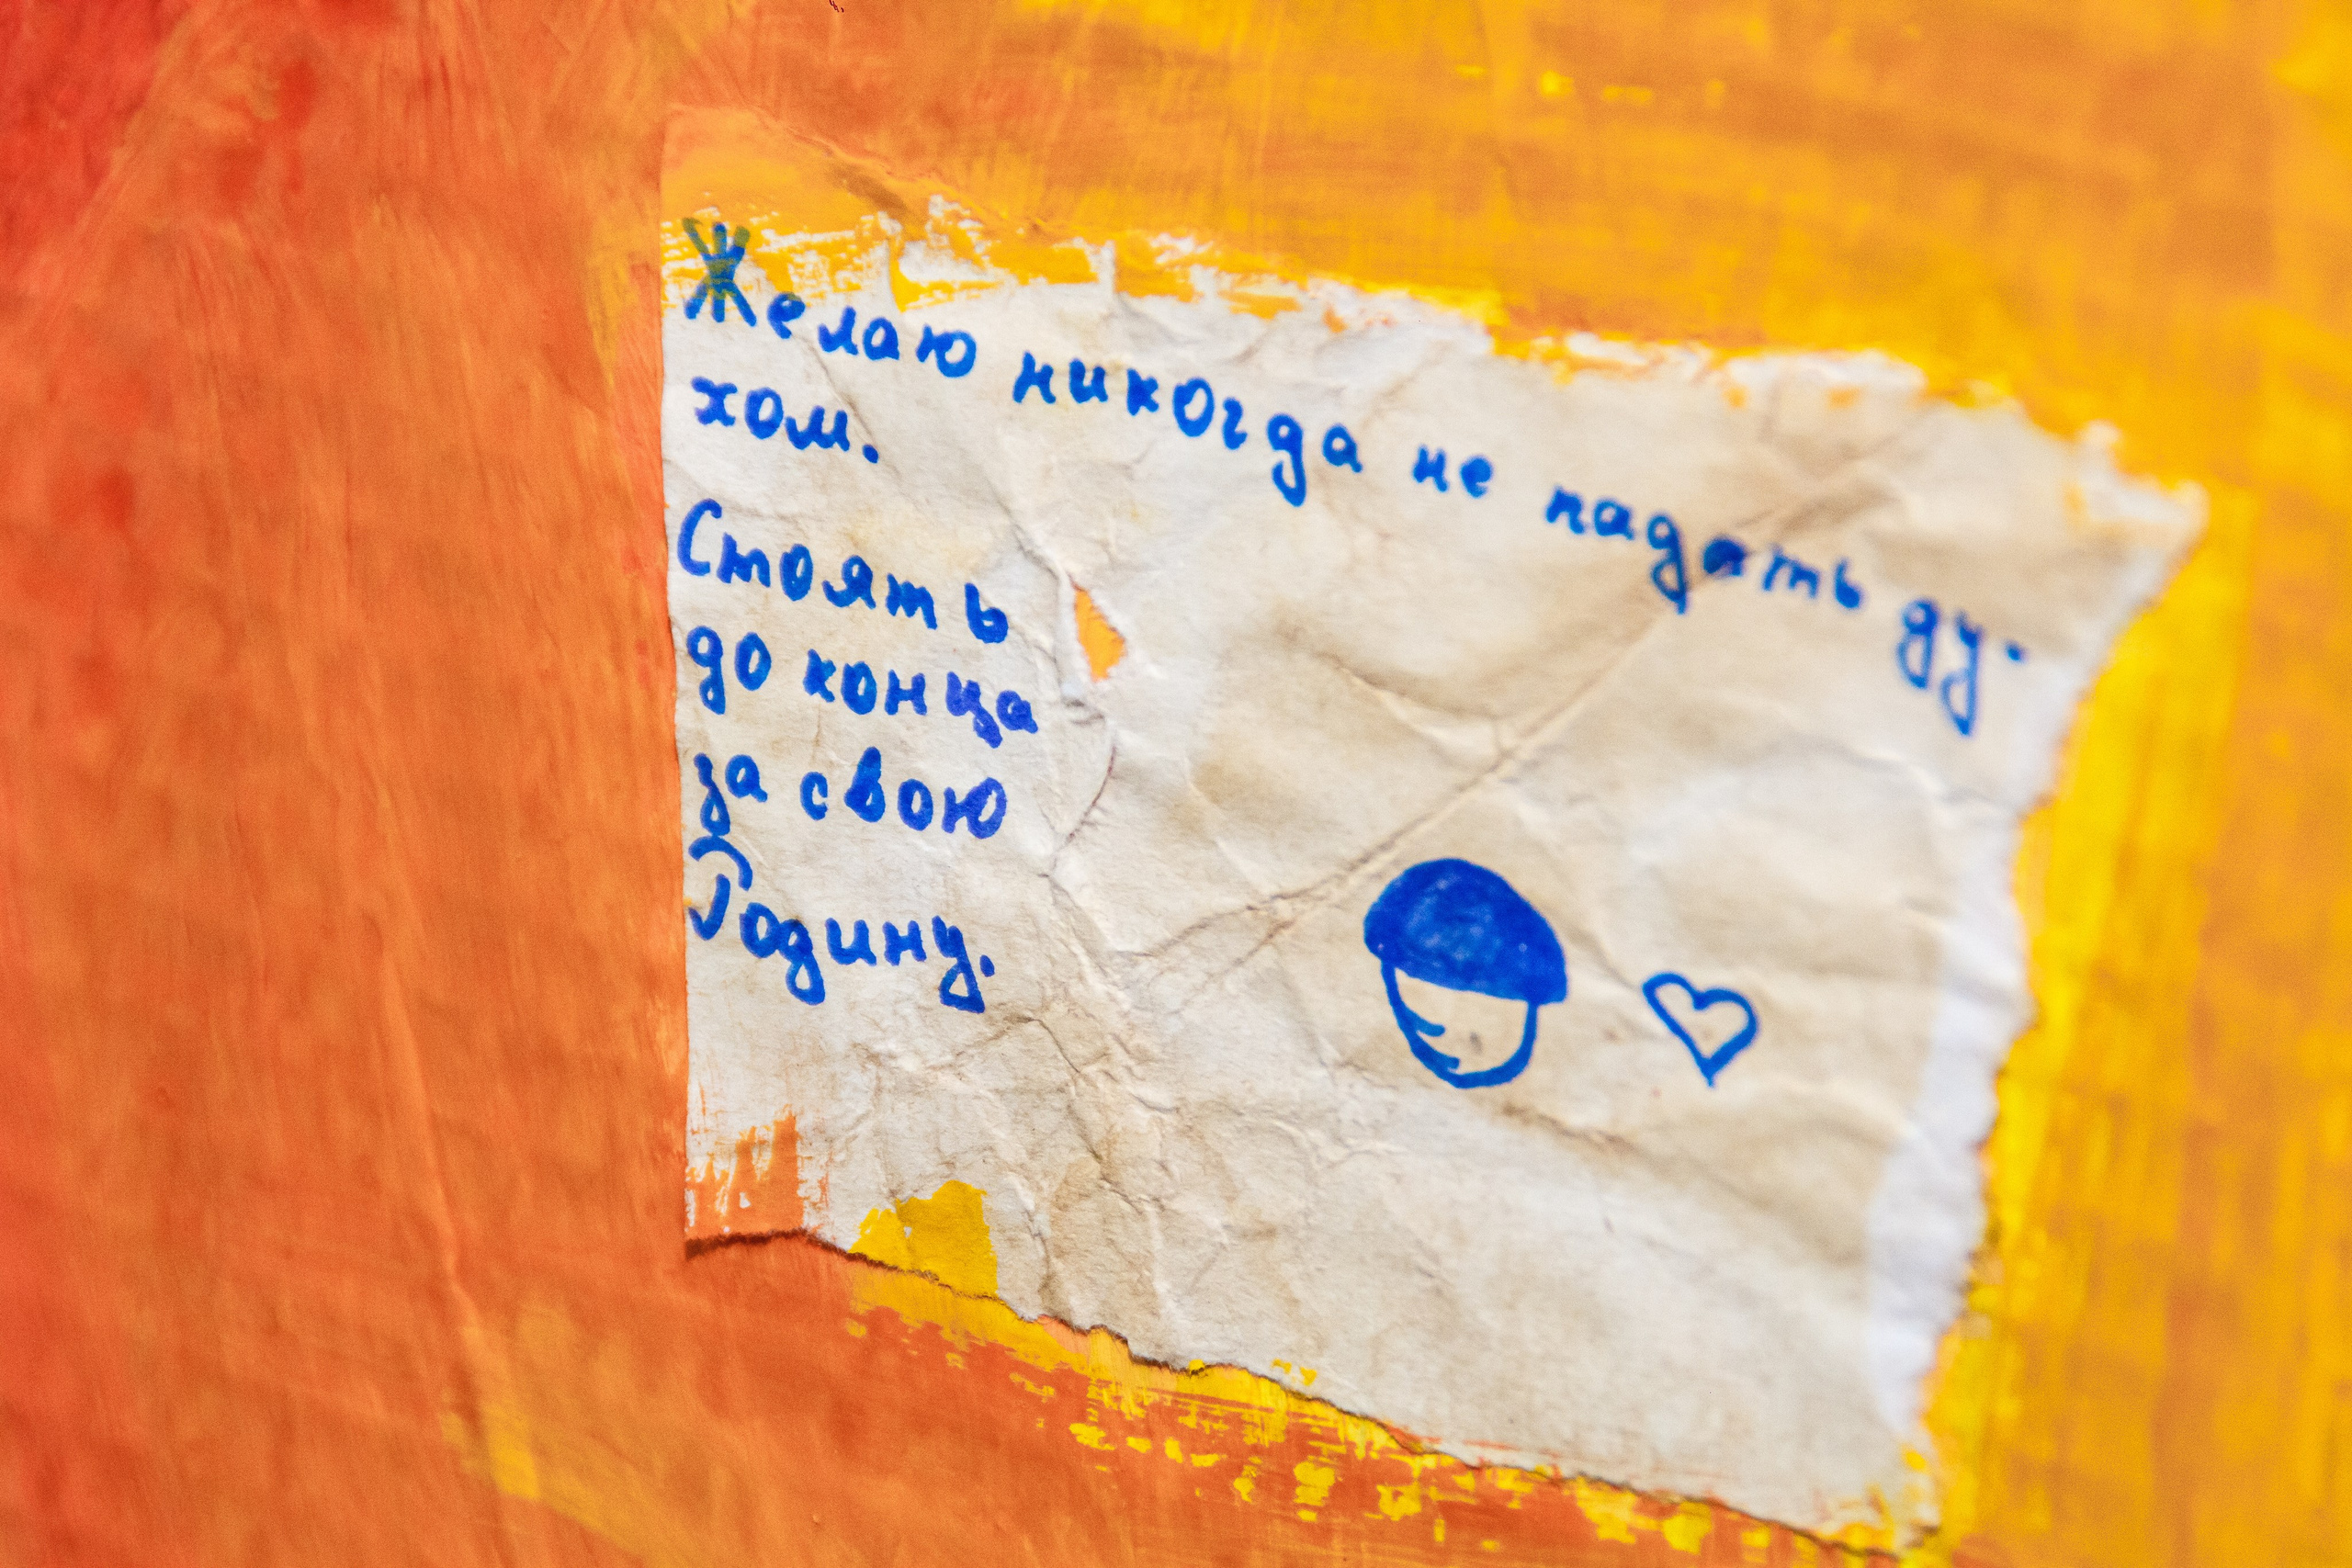 Желаю никогда не падать ду-
хом.
Стоять
до конца
за свою
Родину.